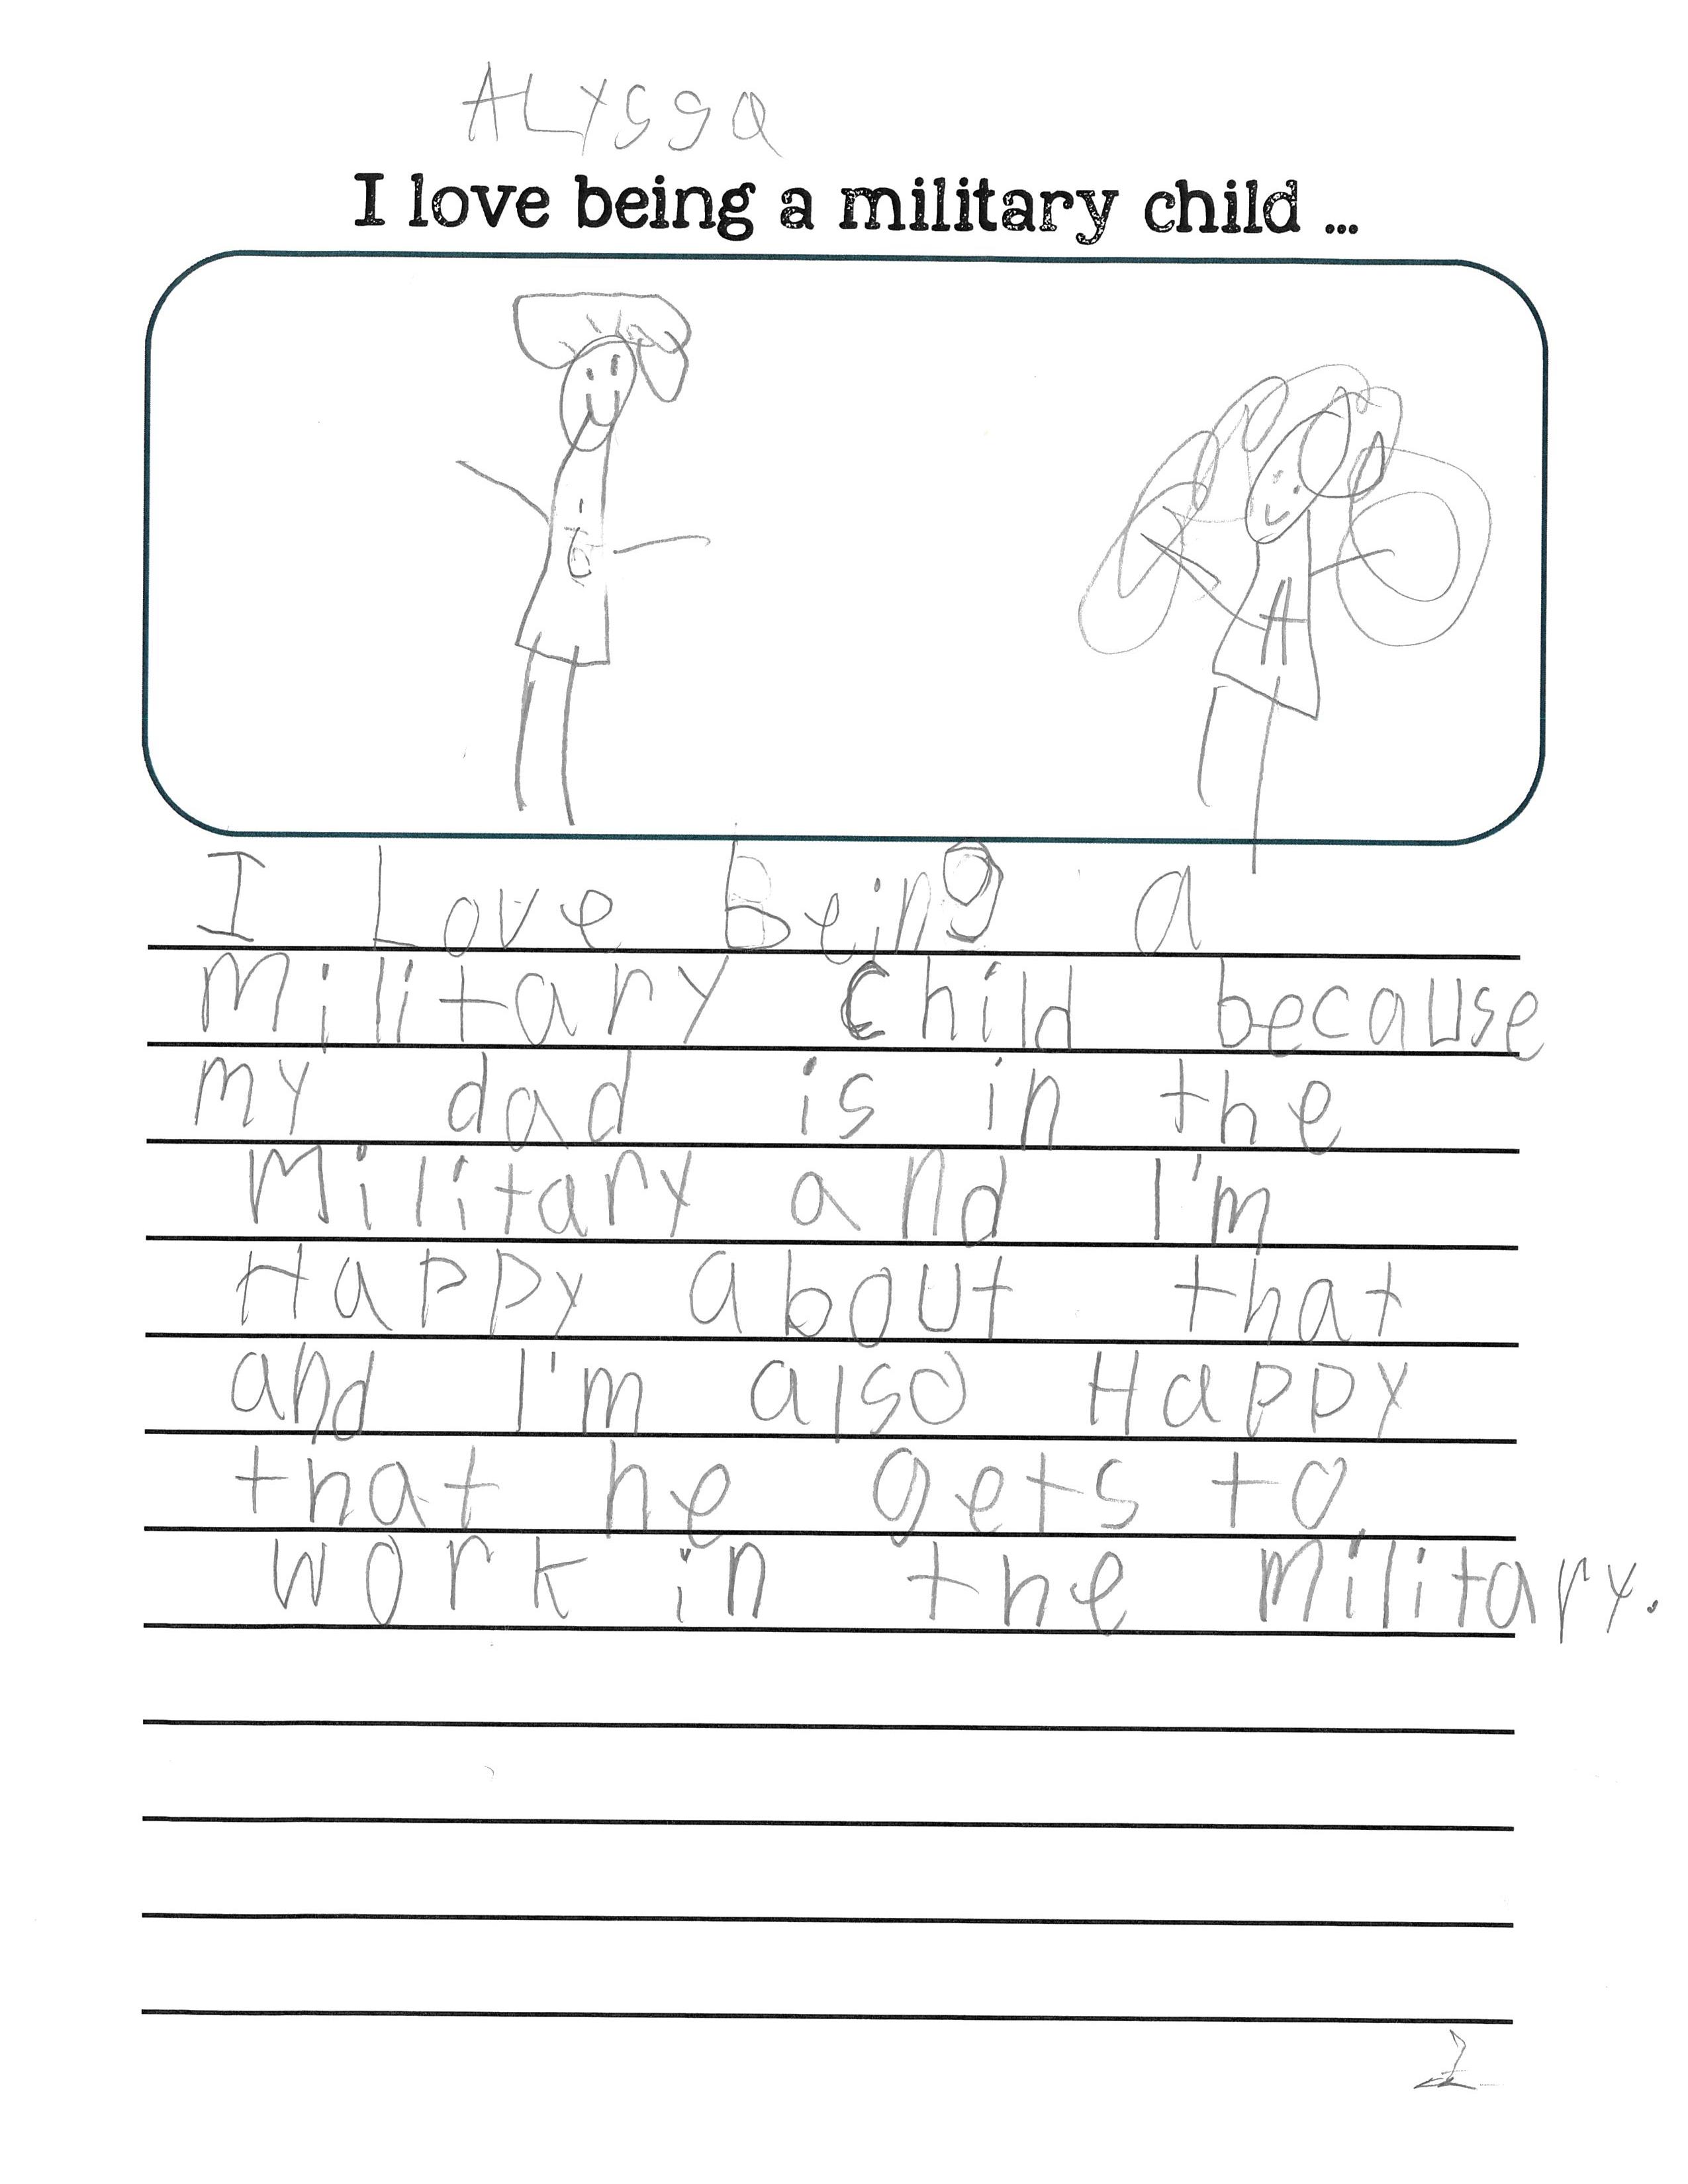 ALYssa
I love being a military child ...
I Love Being a
Military Child because
my dad is in the
Military and I'm
Happy about that
and I'm also Happy
that he gets to
work in the military.